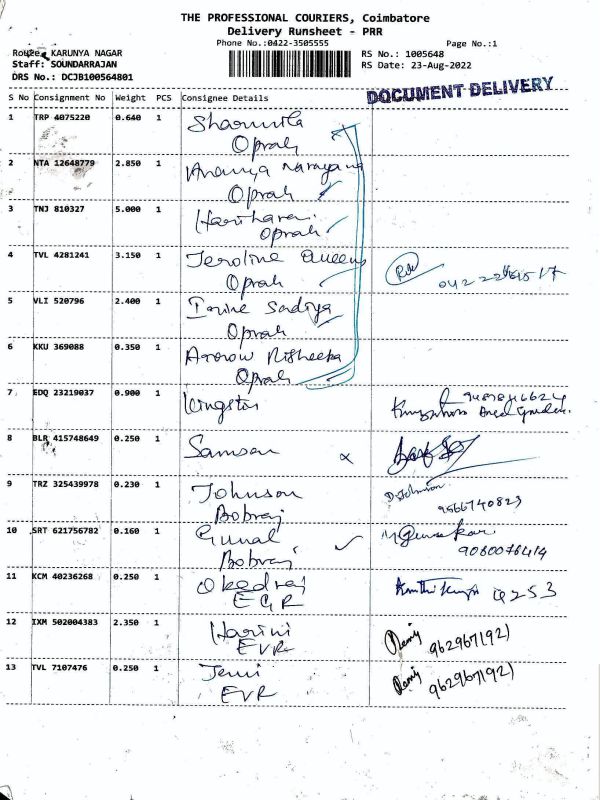 THE PROFESSIONAL COURIERS, Coimbatore
Delivery Runsheet - PRR
Phone No.:0422-3505555
Page No.:1
Route: KARUNYA NAGAR
RS No.: 1005648
Staff: SOUNDARRAJAN
RS Date: 23-Aug-2022
DRS No.: DCJB100564801
DOCUMENT DELIVERY
S No Consignment No Weight PCS Consignee Details
1 TRP 4075220 0.640 1 Sharmila
Oprah
2 NTA 12648779 2.850 1 Ananya Narayana
Oprah
3 TNJ 810327 5.000 1 Hariharan
Oprah
4 TVL 4281241 3.150 1 Jeroline Queens
Oprah
5 VLI 520796 2.400 1 Sadiya
Oprah
6 KKU 369088 0.350 1 Risheeka
Oprah
7 EDQ 23219037 0.900 1 Kingston
8 BLR 415748649 0.250 1 Samson
9 TRZ 325439978 0.230 1 Johnson
Bobraj
9566740823
10 SRT 621756782 0.160 1 Gunal
Bobraj
11 KCM 40236268 0.250 1
EGR
12 IXM 502004383 2.350 1 Harini
EVR
9629671921
13 TVL 7107476 0.250 1 Jemi
EVR
9629671921